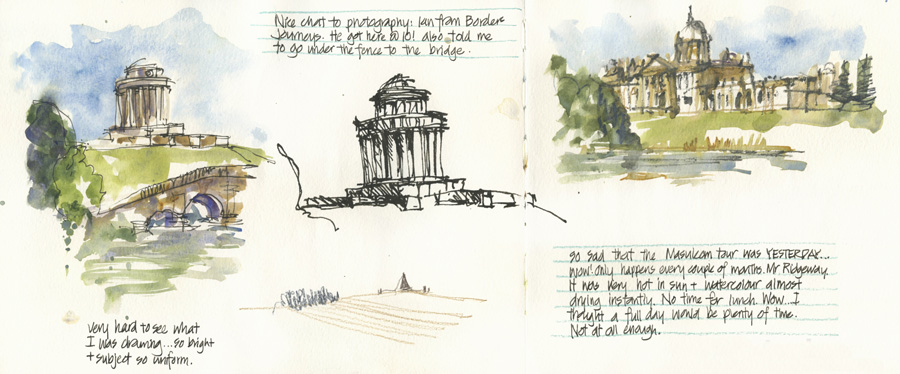 Nice chat to photography: Ian from Border
Journeys. He got here @ 10! also told me
to go under the fence to the bridge.
very hard to see what
I was drawing...so bright
+ subject so uniform.
so sad that the Masulcam tour was YESTERDAY...
Wow! only happens every couple of months. Mr Ridgeway.
It was very hot in sun + watercolour almost
drying instantly. No time for lunch. Wow...I
thought a full day would be plenty of time.
Not at all enough.